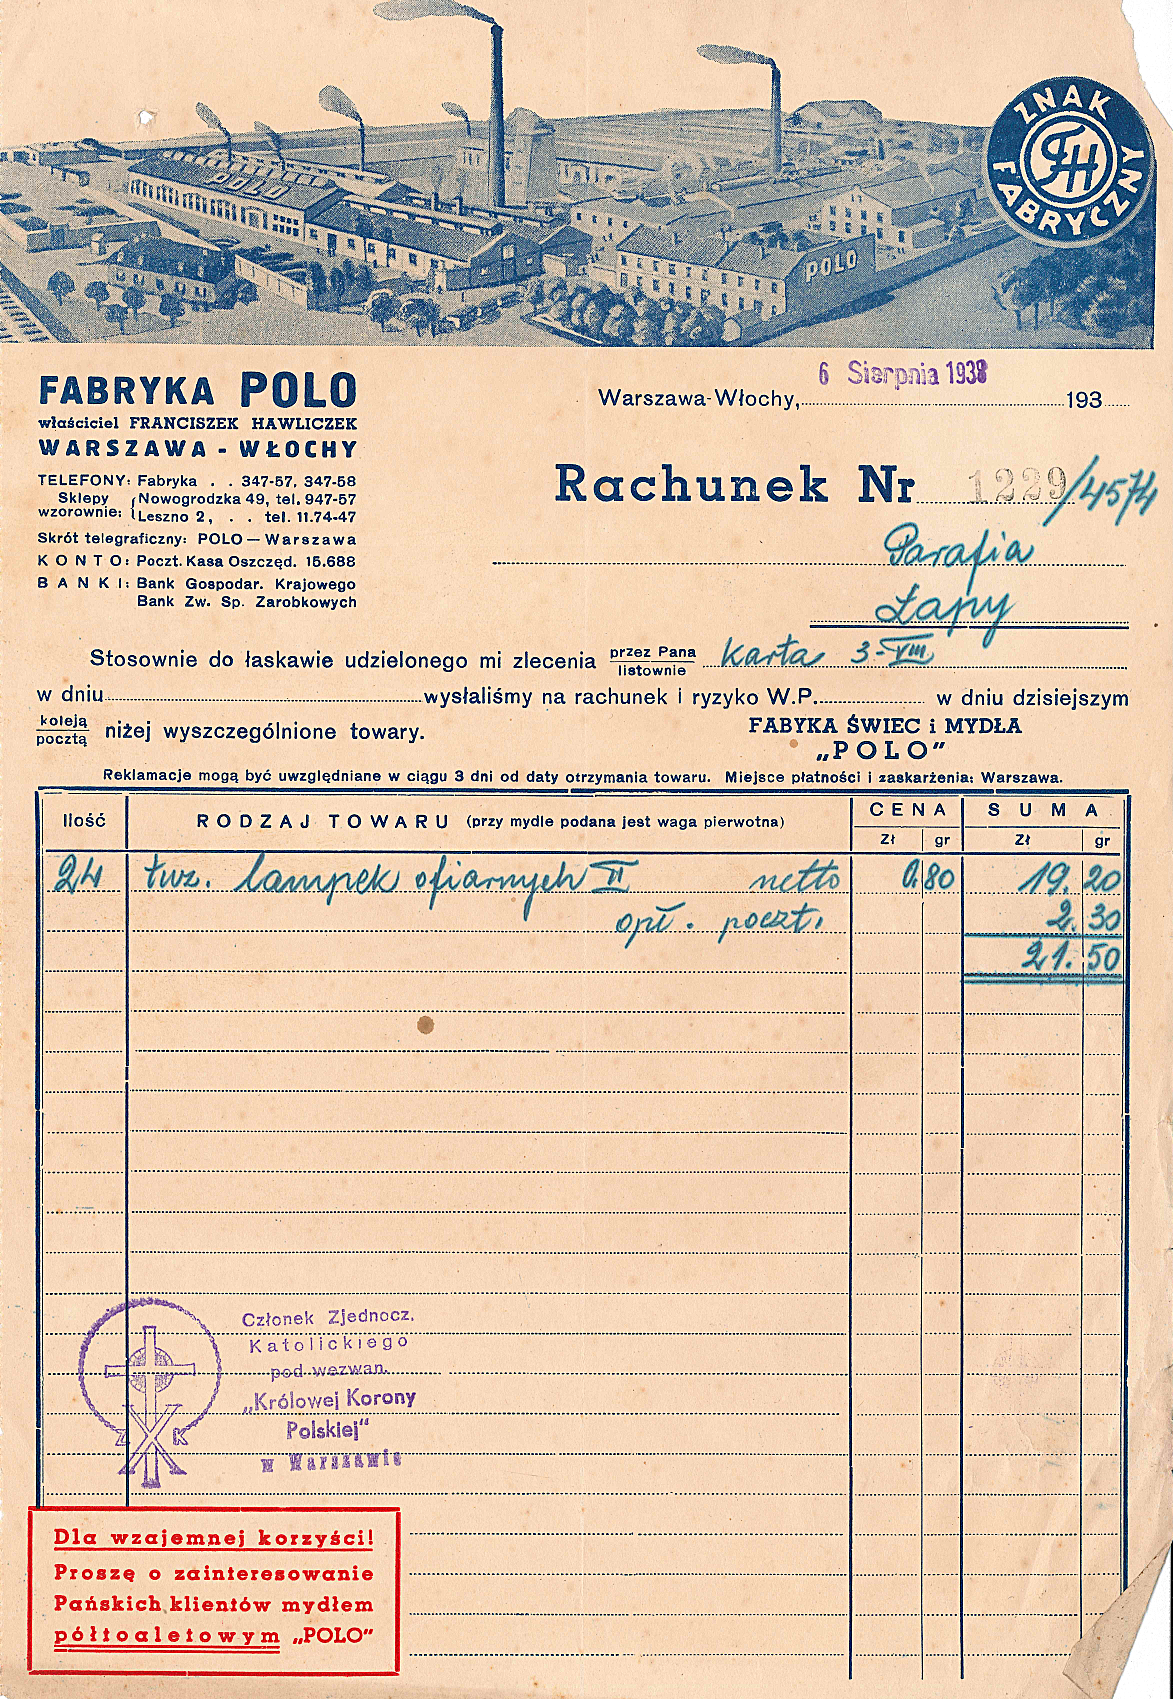 POLO
POLO
ZNAK
FH
FABRYCZNY
FABRYKA POLO
właściciel FRANCISZEK HAWLICZEK
WARSZAWA - WŁOCHY
TELEFONY: Fabryka . . 347-57, 347-58
Sklepy wzorownie: Nowogrodzka 49, tel. 947-57
Leszno 2, . . tel. 11.74-47
Skrót telegraficzny: POLO — Warszawa
KONTO: Poczt. Kasa Oszczęd. 15.688
BANKI: Bank Gospodar. Krajowego
Bank Zw. Sp. Zarobkowych
6 Sierpnia 1938
Warszawa-Włochy, 193
Rachunek Nr 1229/4574
Parafia
Łapy
Stosownie do łaskawie udzielonego mi zlecenia przez Pana listownie karta 3-VIII
w dniu wysłaliśmy na rachunek i ryzyko W.P. w dniu dzisiejszym
koleją pocztą niżej wyszczególnione towary.
FABYKA ŚWIEC i MYDŁA
„POLO”
Reklamacje mogą być uwzględniane w ciągu 3 dni od daty otrzymania towaru. Miejsce płatności i zaskarżenia: Warszawa.
Ilość RODZAJ TOWARU (przy mydle podana jest waga pierwotna) CENA SUMA
Zł gr Zł gr
24 tuz. lampek ofiarnych II netto 0.80 19.20
opł. poczt. 2.30
21.50
Członek Zjednocz.
Katolickiego
pod wezwan.
„Królowej Korony
Polskiej”
w Warszawie
Z K
Dla wzajemnej korzyści!
Proszę o zainteresowanie
Pańskich klientów mydłem
półtoaletowym „POLO”